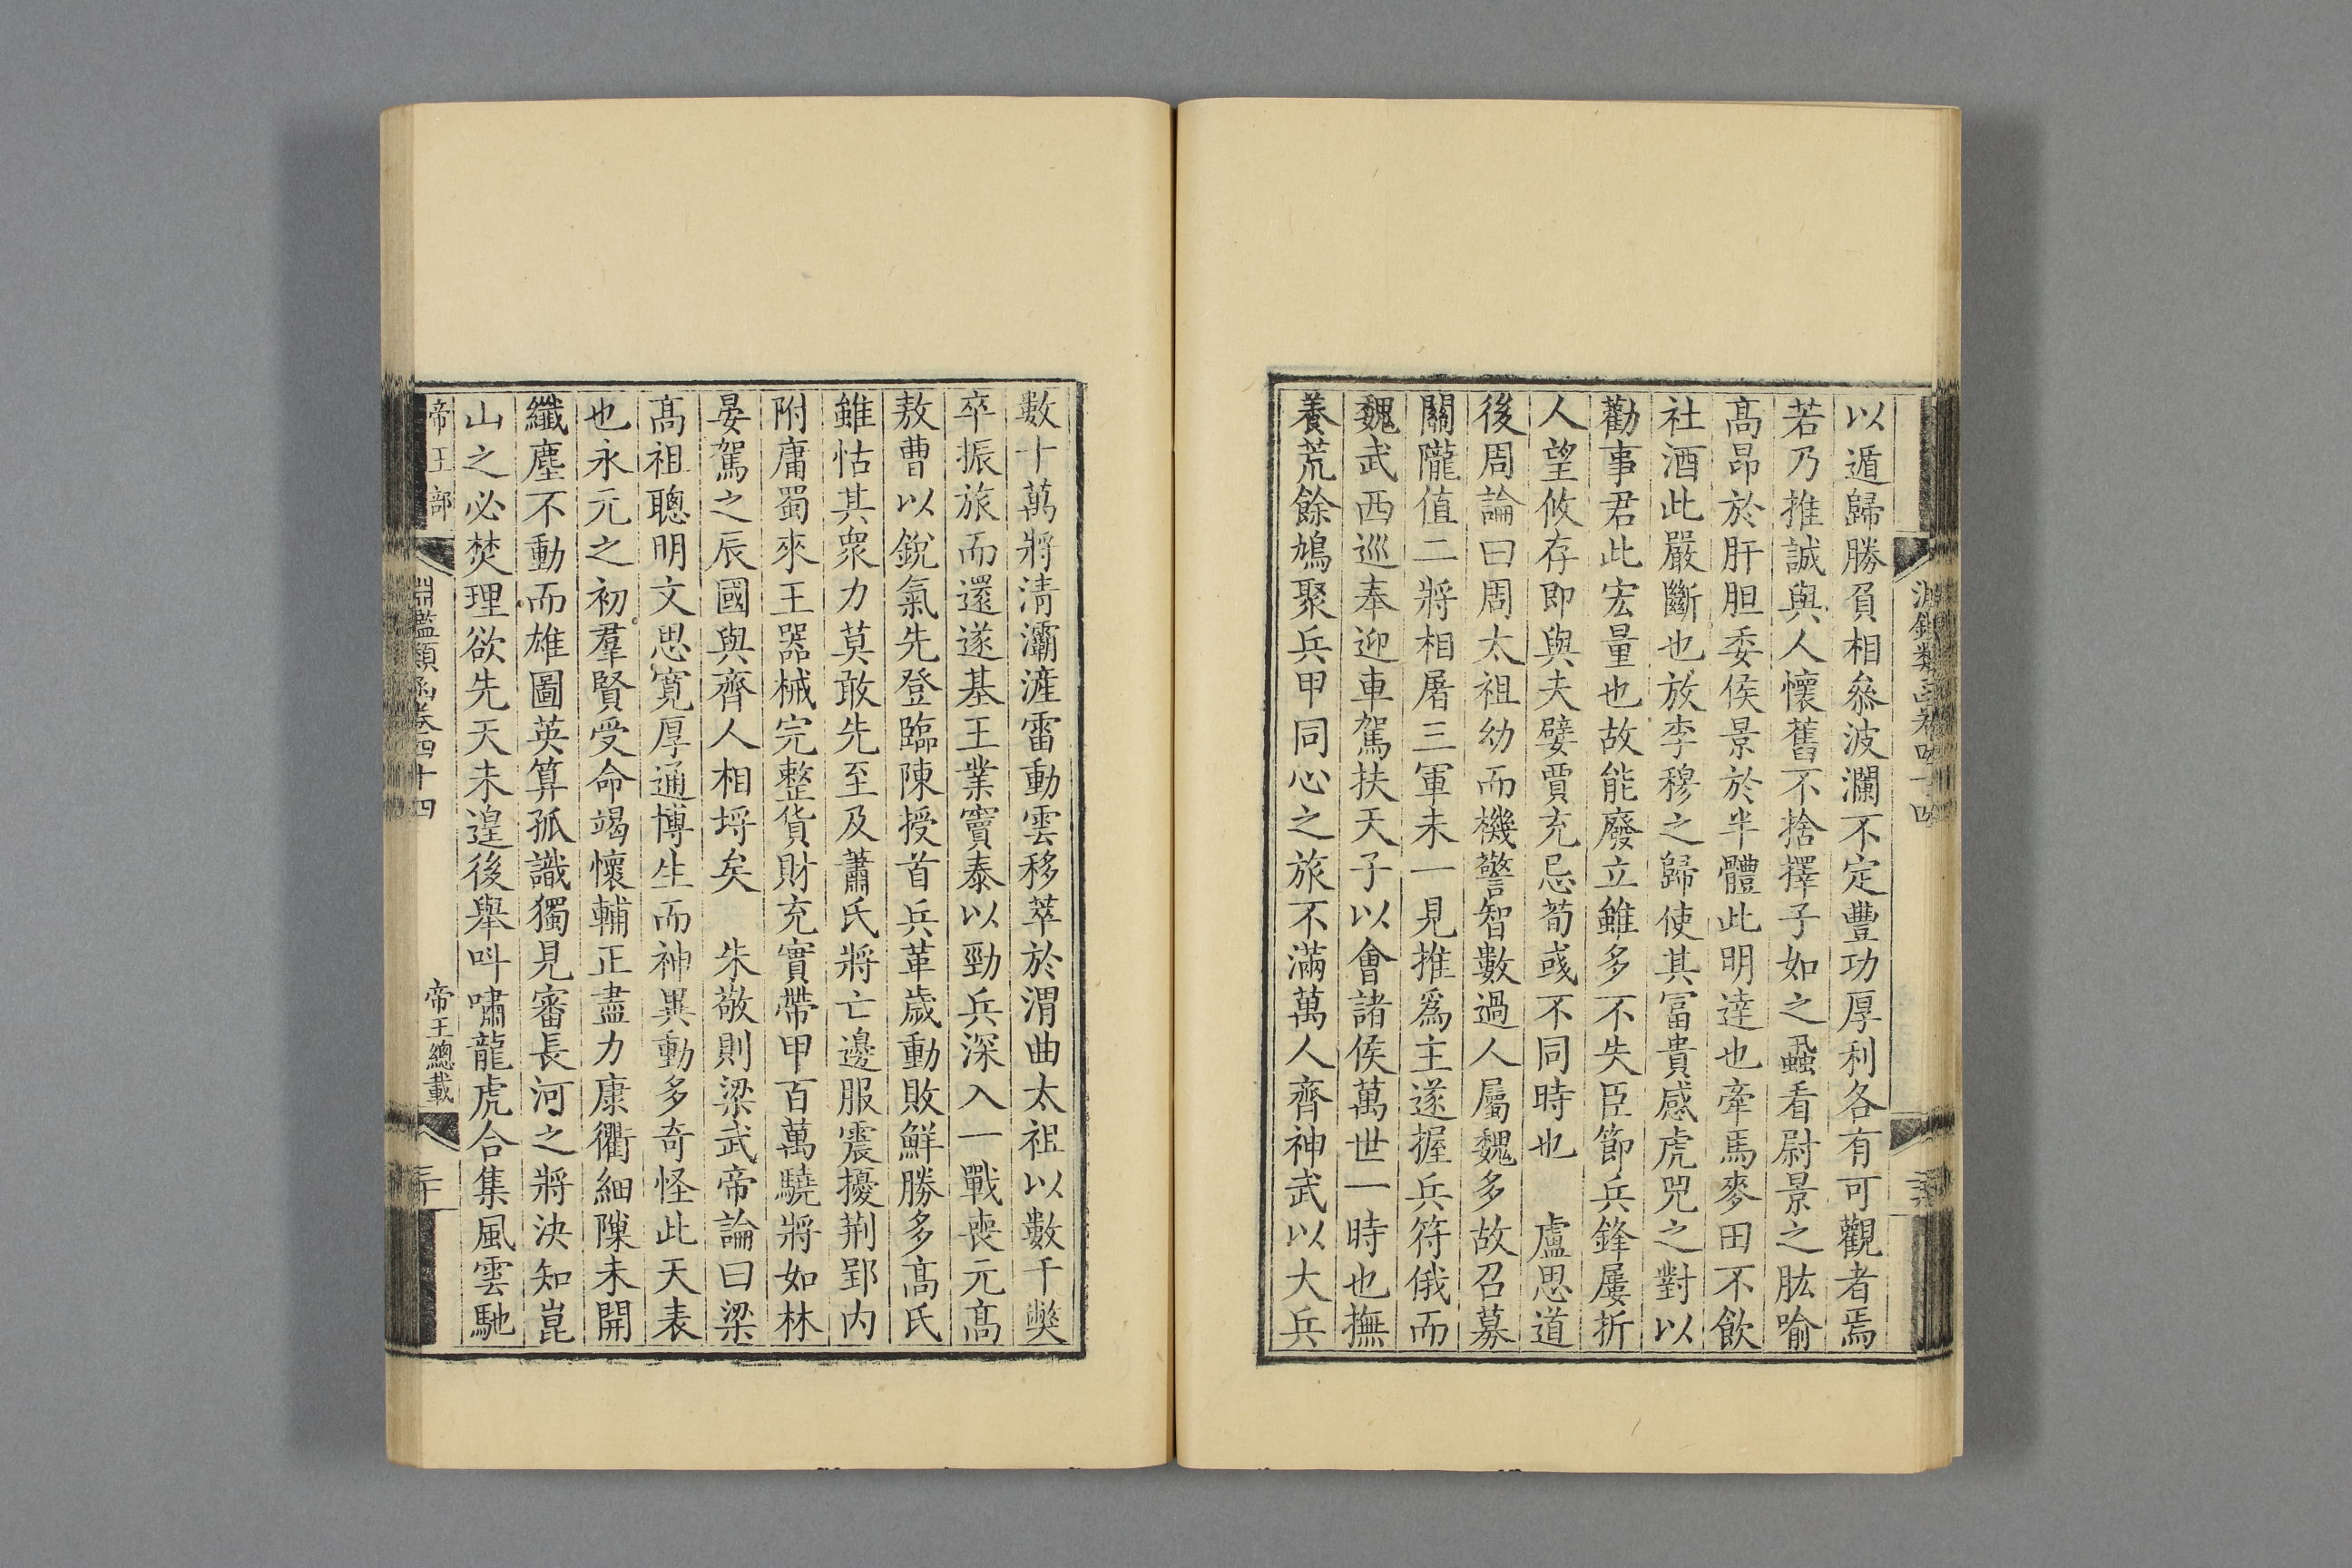 以遁歸勝負相叅波瀾不定豐功厚利各有可觀者焉
若乃推誠與人懷舊不捨擇子如之蝨看尉景之肱喻
高昂於肝胆委侯景於半體此明達也牽馬麥田不飲
社酒此嚴斷也放李穆之歸使其冨貴感虎兕之對以
勸事君此宏量也故能廢立雖多不失臣節兵鋒屢折
人望攸存即與夫嬖賈充忌荀彧不同時也　盧思道
後周論曰周太祖幼而機警智數過人屬魏多故召募
關隴值二將相屠三軍未一見推爲主遂握兵符俄而
魏武西巡奉迎車駕扶天子以會諸侯萬世一時也撫
養荒餘鳩聚兵甲同心之旅不滿萬人齊神武以大兵
數十萬將清灞滻雷動雲移萃於渭曲太祖以數千獘
卒振旅而還遂基王業竇泰以勁兵深入一戰喪元高
敖曹以銳氣先登臨陳授首兵革歲動敗鮮勝多高氏
雖怙其衆力莫敢先至及蕭氏將亡邊服震擾荆郢内
附庸蜀來王器械完整貨財充實帶甲百萬驍將如林
晏駕之辰國與齊人相埒矣　朱敬則梁武帝論曰梁
高祖聰明文思寛厚通博生而神異動多奇怪此天表
也永元之初羣賢受命竭懷輔正盡力康衢細隟未開
纖塵不動而雄圖英算孤識獨見審長河之將決知崑
山之必焚理欲先天未遑後舉呌嘯龍虎合集風雲馳
帝王部
淵鑑類函卷四十四
帝王總載